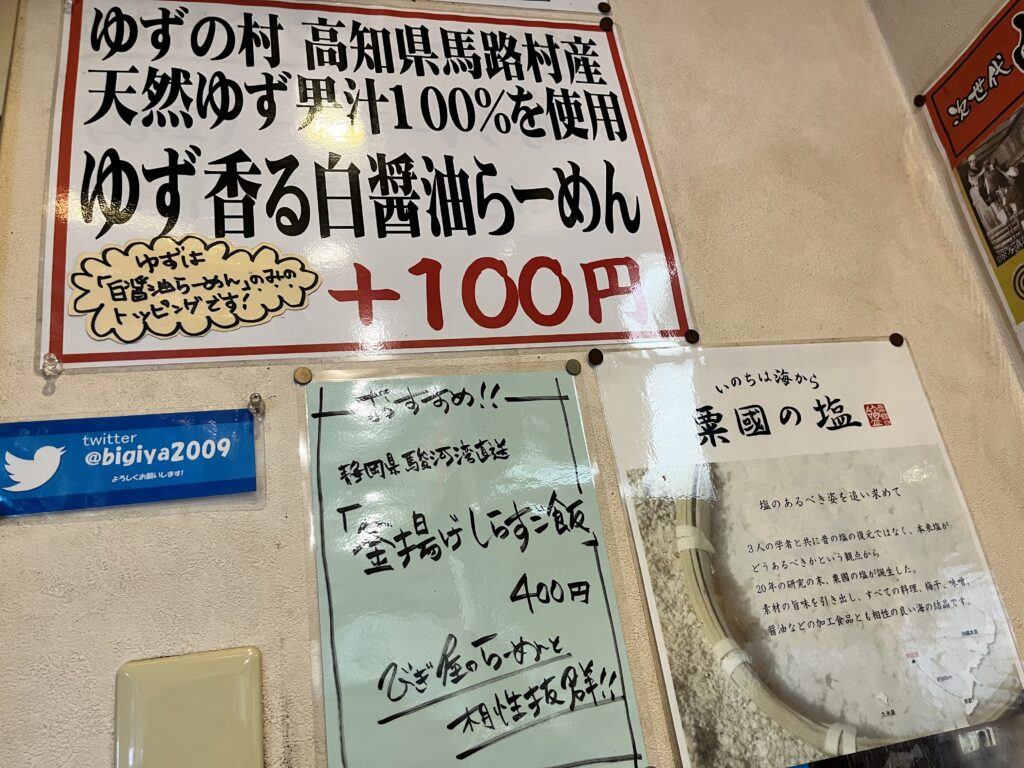 ゆずの村 高知県馬路村産
天然ゆず果汁100%を使用
ゆず香る白醤油らーめん
ゆずは
「白醤油らーめん」のみの
トッピングです!
+100円
twitter
@bigiya2009
よろしくお願いします!
おすすめ!!
静岡県駿河湾直送
「釜揚げしらすご飯」
400円
びぎ屋のらーめんと
相性抜群!!
いのちは海から
粟國の塩
塩のあるべき姿を追い求めて
3人の学者と共に昔の塩の復元ではなく、本来塩が
どうあるべきかという観点から
20年の研究の末、粟國の塩が誕生した。
素材の旨味を引き出し、すべての料理、梅干、味噌、
醤油などの加工食品とも相性の良い海の結晶です。
沖縄本島
久米島
次世代